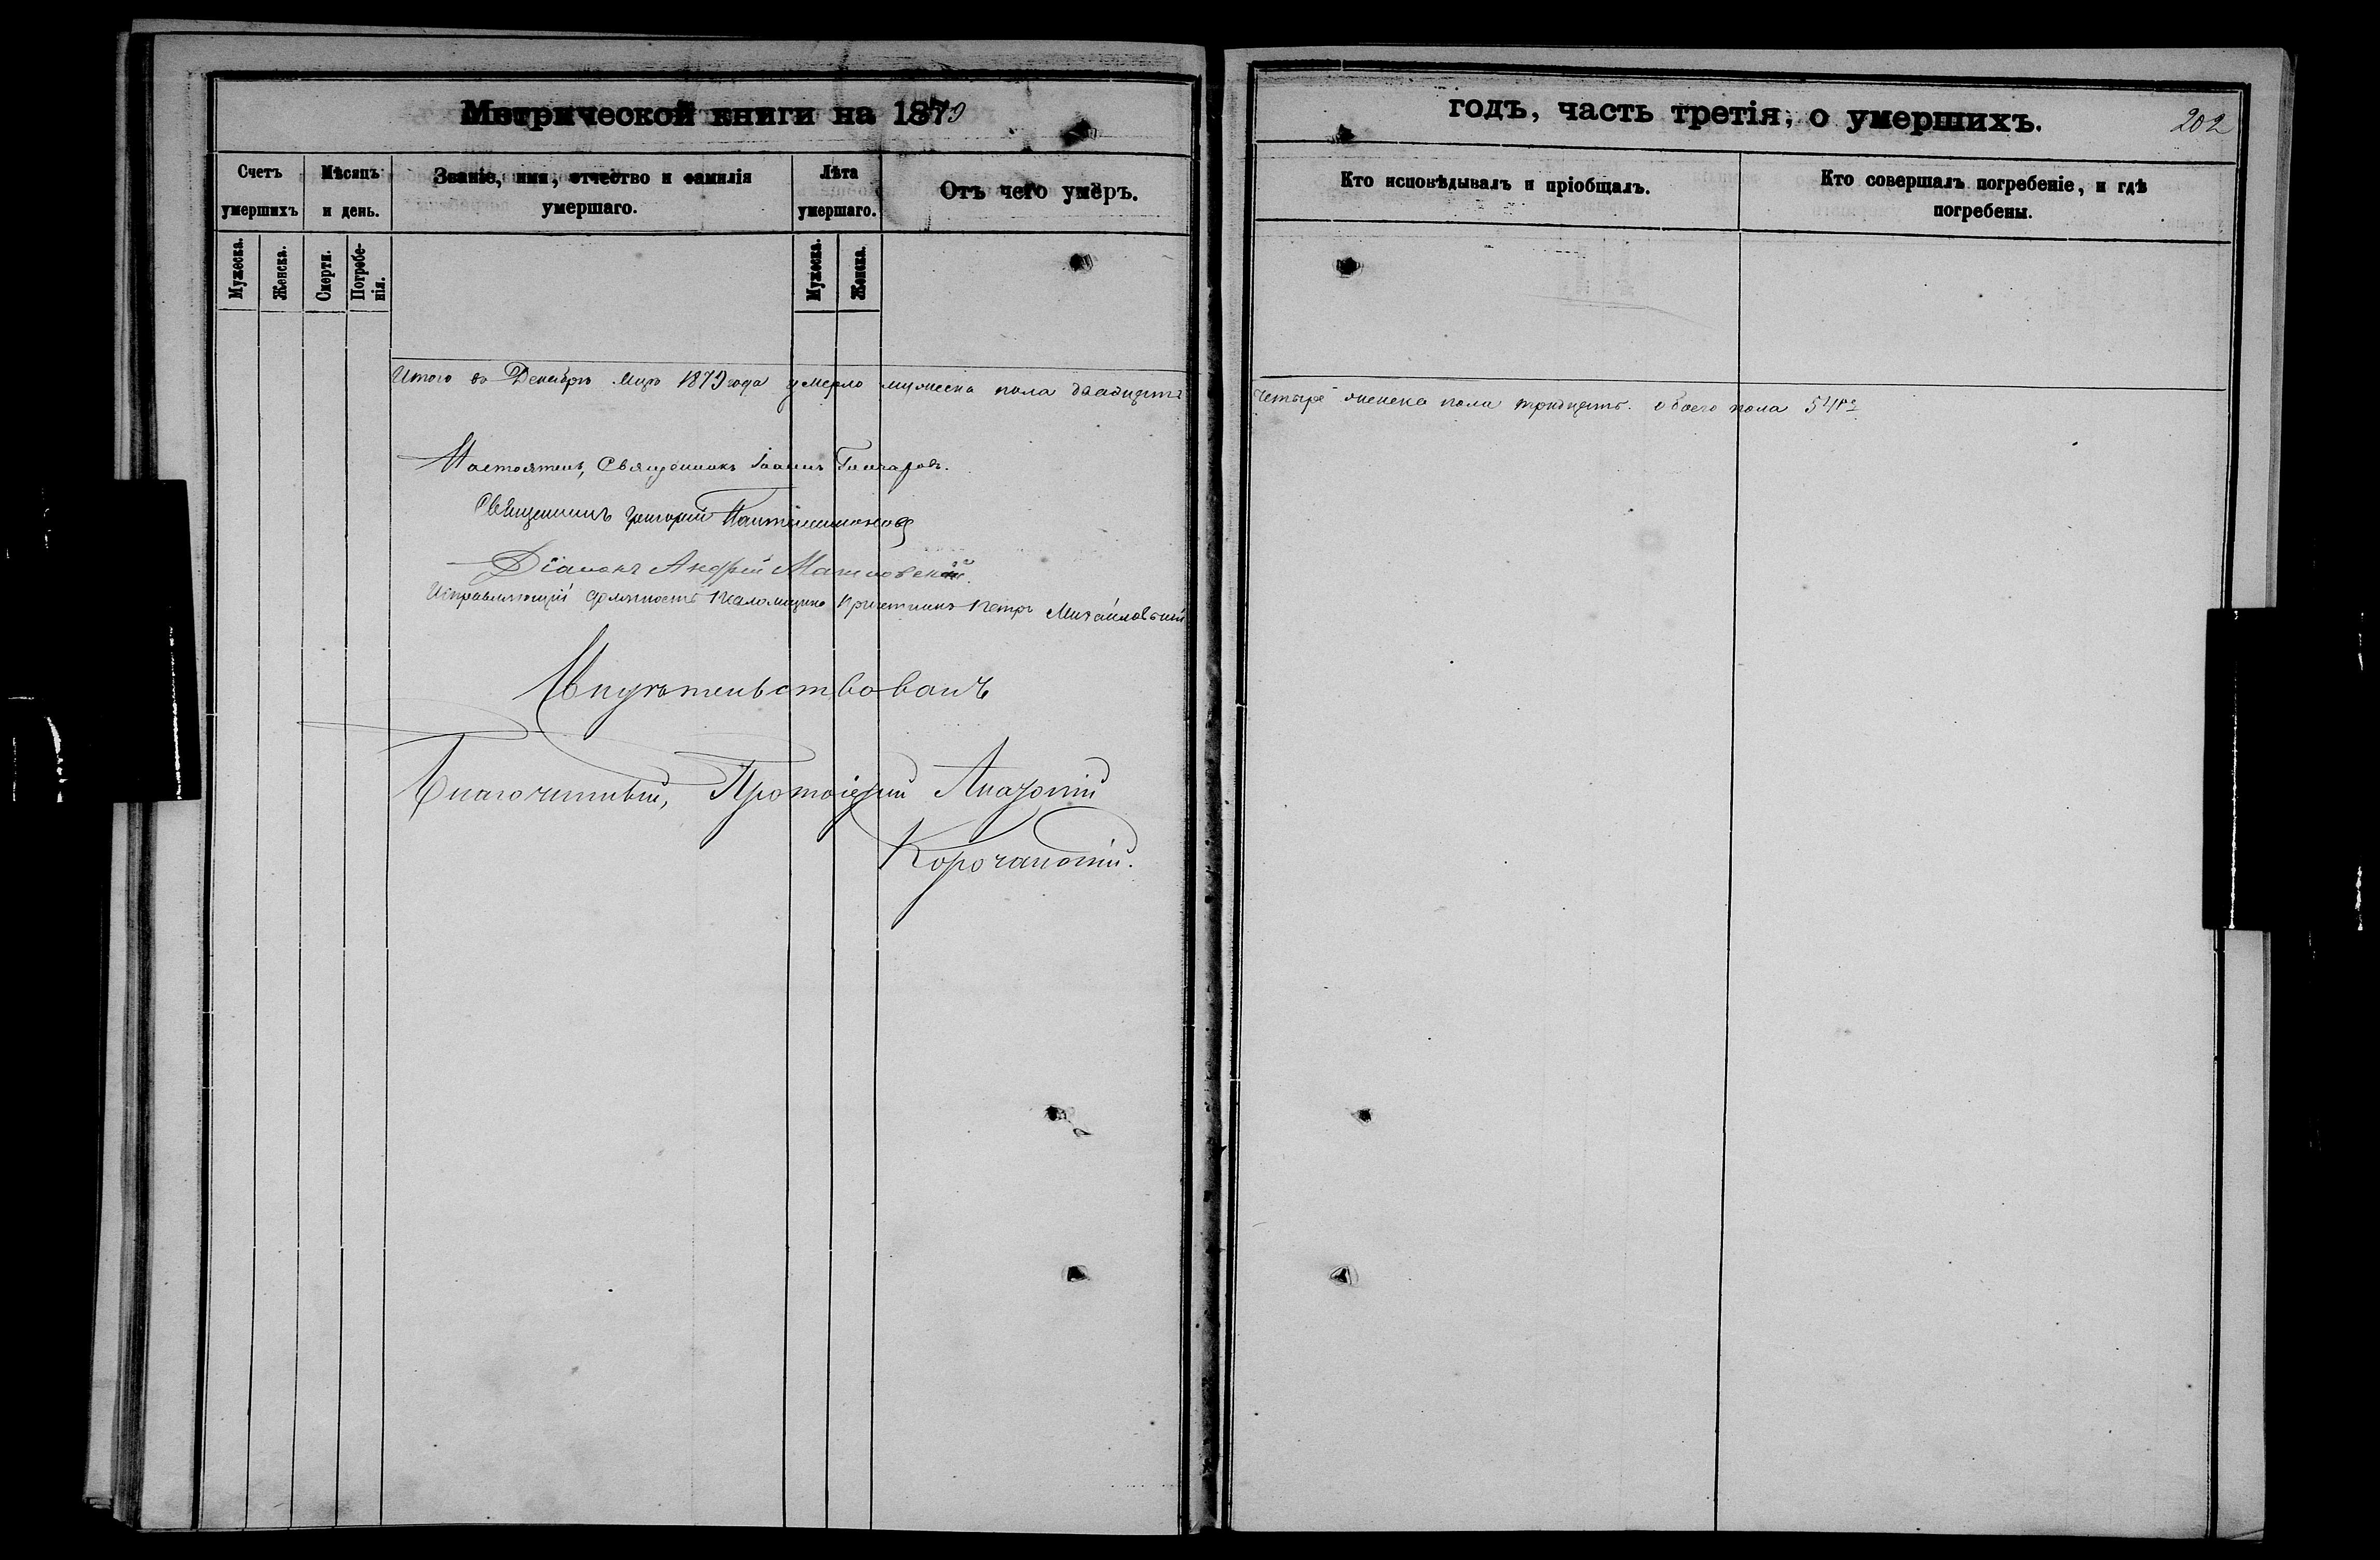 Метрической книги на 1879
годъ, часть третія, о умершихъ.
202
Счетъ умершихъ
Мѣсяцъ и день.
Званіе, имя, отчество и фамилія умершаго.
Лѣта умершаго.
Отъ чего умеръ.
Кто исповѣдывалъ и пріобщалъ.
Кто совершалъ погребеніе, и гдѣ погребены.
Мужеска.
Женска.
Смерти.
Погребе-
нія.
Мужеска.
Женска.
Итого въ Декабрѣ Мцѣ 1879 года умерло мужеска пола двадцать
четыре женска пола тридцать. обоего пола 54
Настоятель, Священникъ Іоаннъ Гончаровъ.
Священникъ Григорій Пантелимоновъ
Діаконъ Андрей
Исправляющій должность Псаломщика Причетникъ Петръ Михайловскій
Свидѣтельствовалъ
Благочинный, Протоіерей
Корочанскій.